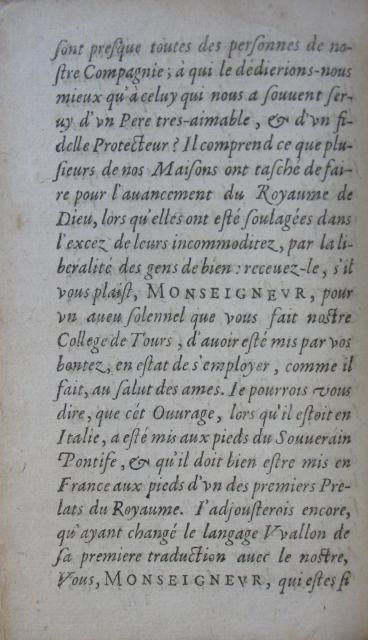 ſont preſque toutes des perſonnes de no-
ſtre Compagnie; à qui le dédierions-nous
mieux qu'à celuy qui nous a ſouuent ſer-
uy d'vn Pere tres-aimable, & d'vn fi-
delle Protecteur? Il comprend ce que plu-
ſieurs de nos Maiſons ont taſché de fai-
re pour l'auancement du Royaume de
Dieu, lors qu'elles ont eſté ſoulagées dans
l'excez de leurs incommoditez, par la li-
beralité des gens de bien: receuez-le, s'il
vous plaiſt, MONSEIGNEVR, pour
vn aueu ſolennel que vous fait noſtre
College de Tours, d'auoir eſté mis par vos
bontez, en eſtat de s'employer, comme il
fait, au ſalut des ames. Ie pourrois vous
dire, que cét Ouurage, lors qu'il eſtoit en
Italie, a eſté mis aux pieds du Souuerain
Pontife, & qu'il doit bien eſtre mis en
France aux pieds d'vn des premiers Pre-
lats du Royaume. I'adjouſterois encore,
qu'ayant changé le langage Vvallon de
ſa premiere traduction auec le noſtre,
Vous, MONSEIGNEVR, qui eſtes ſi